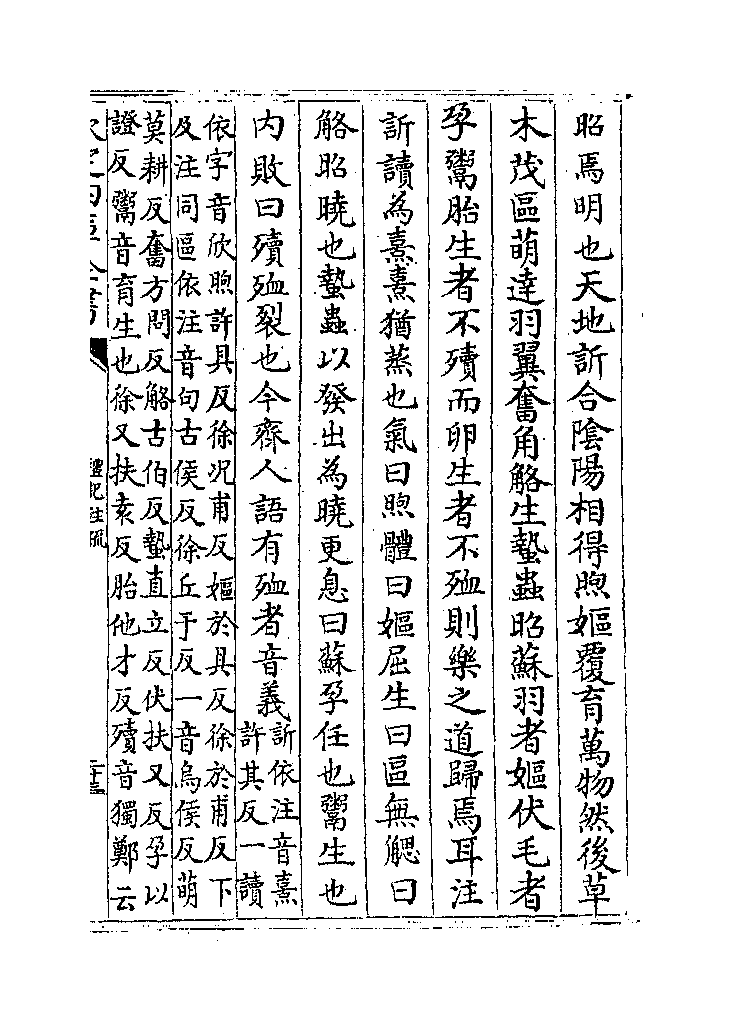 昭焉明也天地訢合陰陽相得煦嫗覆育萬物然後草
木茂區萌達羽翼奮角觡生蟄蟲昭蘇羽者嫗伏毛者
孕鬻胎生者不殰而卵生者不殈則樂之道歸焉耳注
訢讀為熹熹猶蒸也氣曰煦體曰嫗屈生曰區無䚡曰
觡昭曉也蟄蟲以發出為曉更息曰蘇孕任也鬻生也
内敗曰殰殈裂也今齊人語有殈者音義
訢依注音熹
許其反一讀
依字音欣煦許具反徐況甫反嫗於具反徐於甫反下
及注同區依注音句古侯反徐丘于反一音烏侯反萌
莫耕反奮方問反觡古伯反蟄直立反伏扶又反孕以
證反鬻音育生也徐又扶袁反胎他才反殰音獨鄭云
禮記註疏